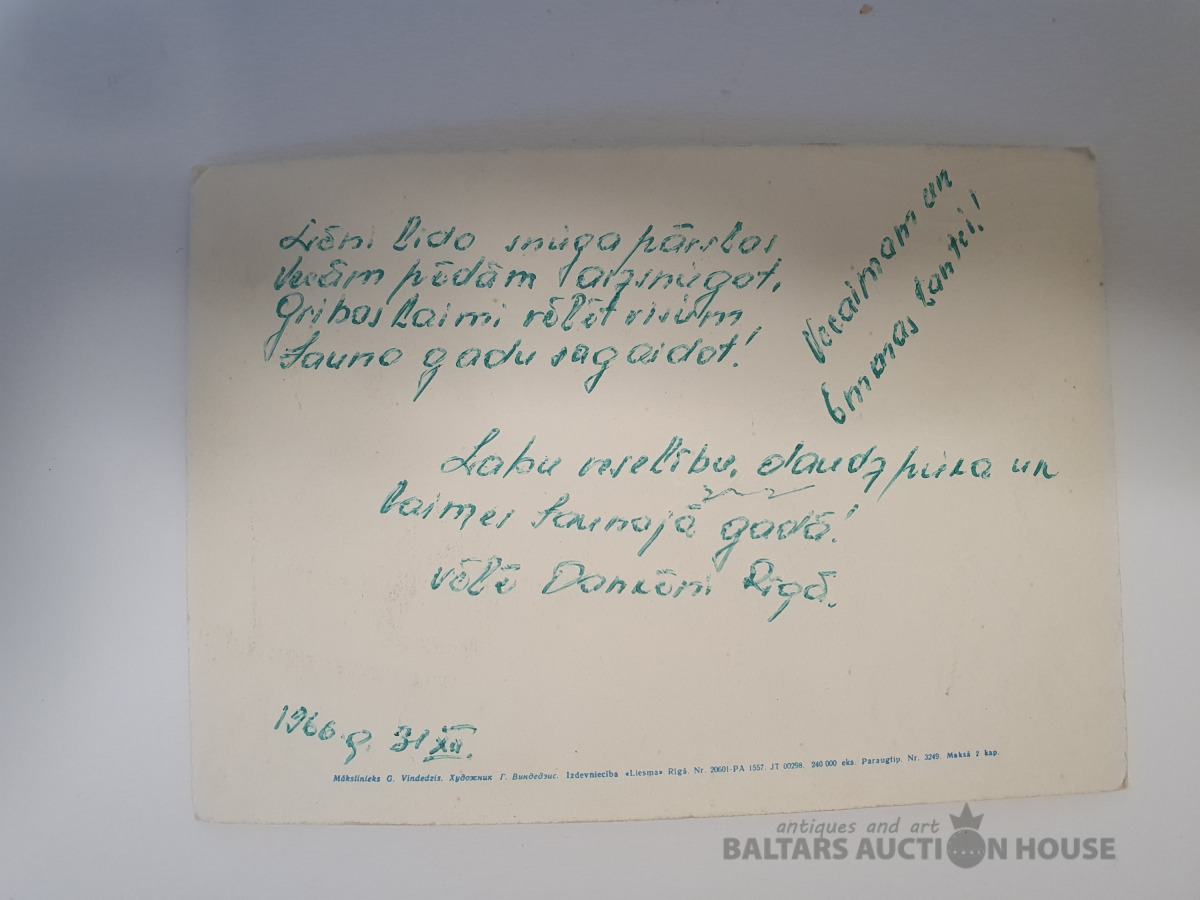 Lēni lido sniega pārslas
Vecām pēdām aizsniegot,
Gribas laimi vēlēt visiem,
Jauno gadu sagaidot!
Vecaimam un
Emmas tantei!
Labu veselību, daudz prieka un
laimes Jaunajā gadā!
vēlē Rīgā.
1966. g. 31 XII.
Mākslinieks G. Vindedzis. Художник Г. Виндедзис. Izdevniecība «Liesma» Rīgā. Nr. 20601-PA 1557. JT 00298. 240 000 eks. Paraugtip. Nr. 3249. Maksā 2 kap.
antiques and art
BALTARS AUCTION HOUSE